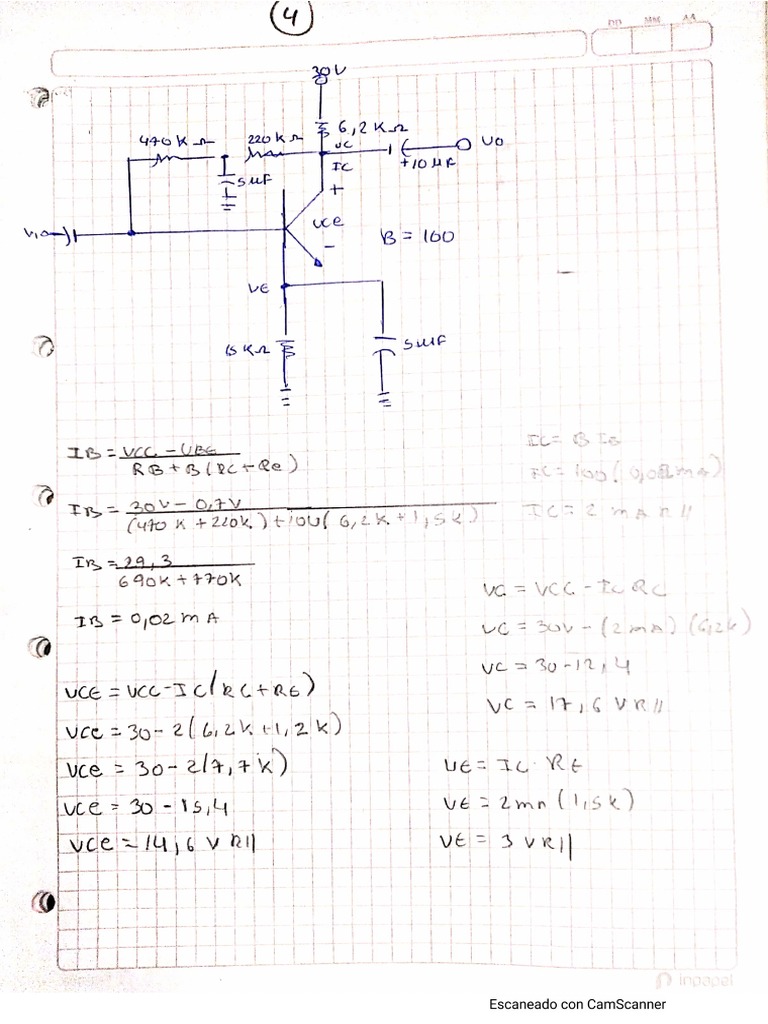 4
DD MM AA
30V
6,2KΩ
470KΩ
220KΩ
VC
VO
IC
+10μF
5μF
+
VCE
Vi
-
B = 100
VE
15KΩ
5μF
IB = VCC - VBE
RB + B(RC + Re)
IB = 30V - 0,7V
(470K + 220K) + 100(6,2K + 1,5K)
IB = 29,3
690K + 770K
IB = 0,02 mA
IC = B IB
IC = 100(0,02mA)
IC = 2 mA R//
VC = VCC - IC RC
VC = 30V - (2mA)(6,2K)
VC = 30 - 12,4
VC = 17,6 V R//
VCE = VCC - IC(RC + RE)
VCE = 30 - 2(6,2K + 1,2K)
VCE = 30 - 2(7,7K)
VCE = 30 - 15,4
VCE = 14,6 V R//
VE = IC · RE
VE = 2mA(1,5K)
VE = 3 V R//
inpapel
Escaneado con CamScanner